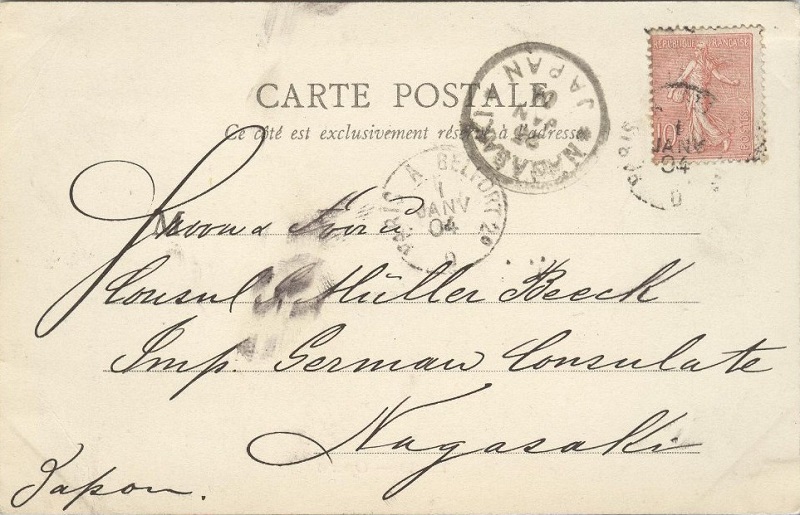 CARTE POSTALE
Ce côté est exclusivement réservé à l'adresse
RÉPUBLIQUE FRANÇAISE
10
POSTES
1
JANV
04
NAGASAKI
JAPAN
JAN
04
PARIS A BELFORT 2º
1
JANV
04
Consul Müller Beeck
Imp. German Consulate
Nagasaki
Japon.